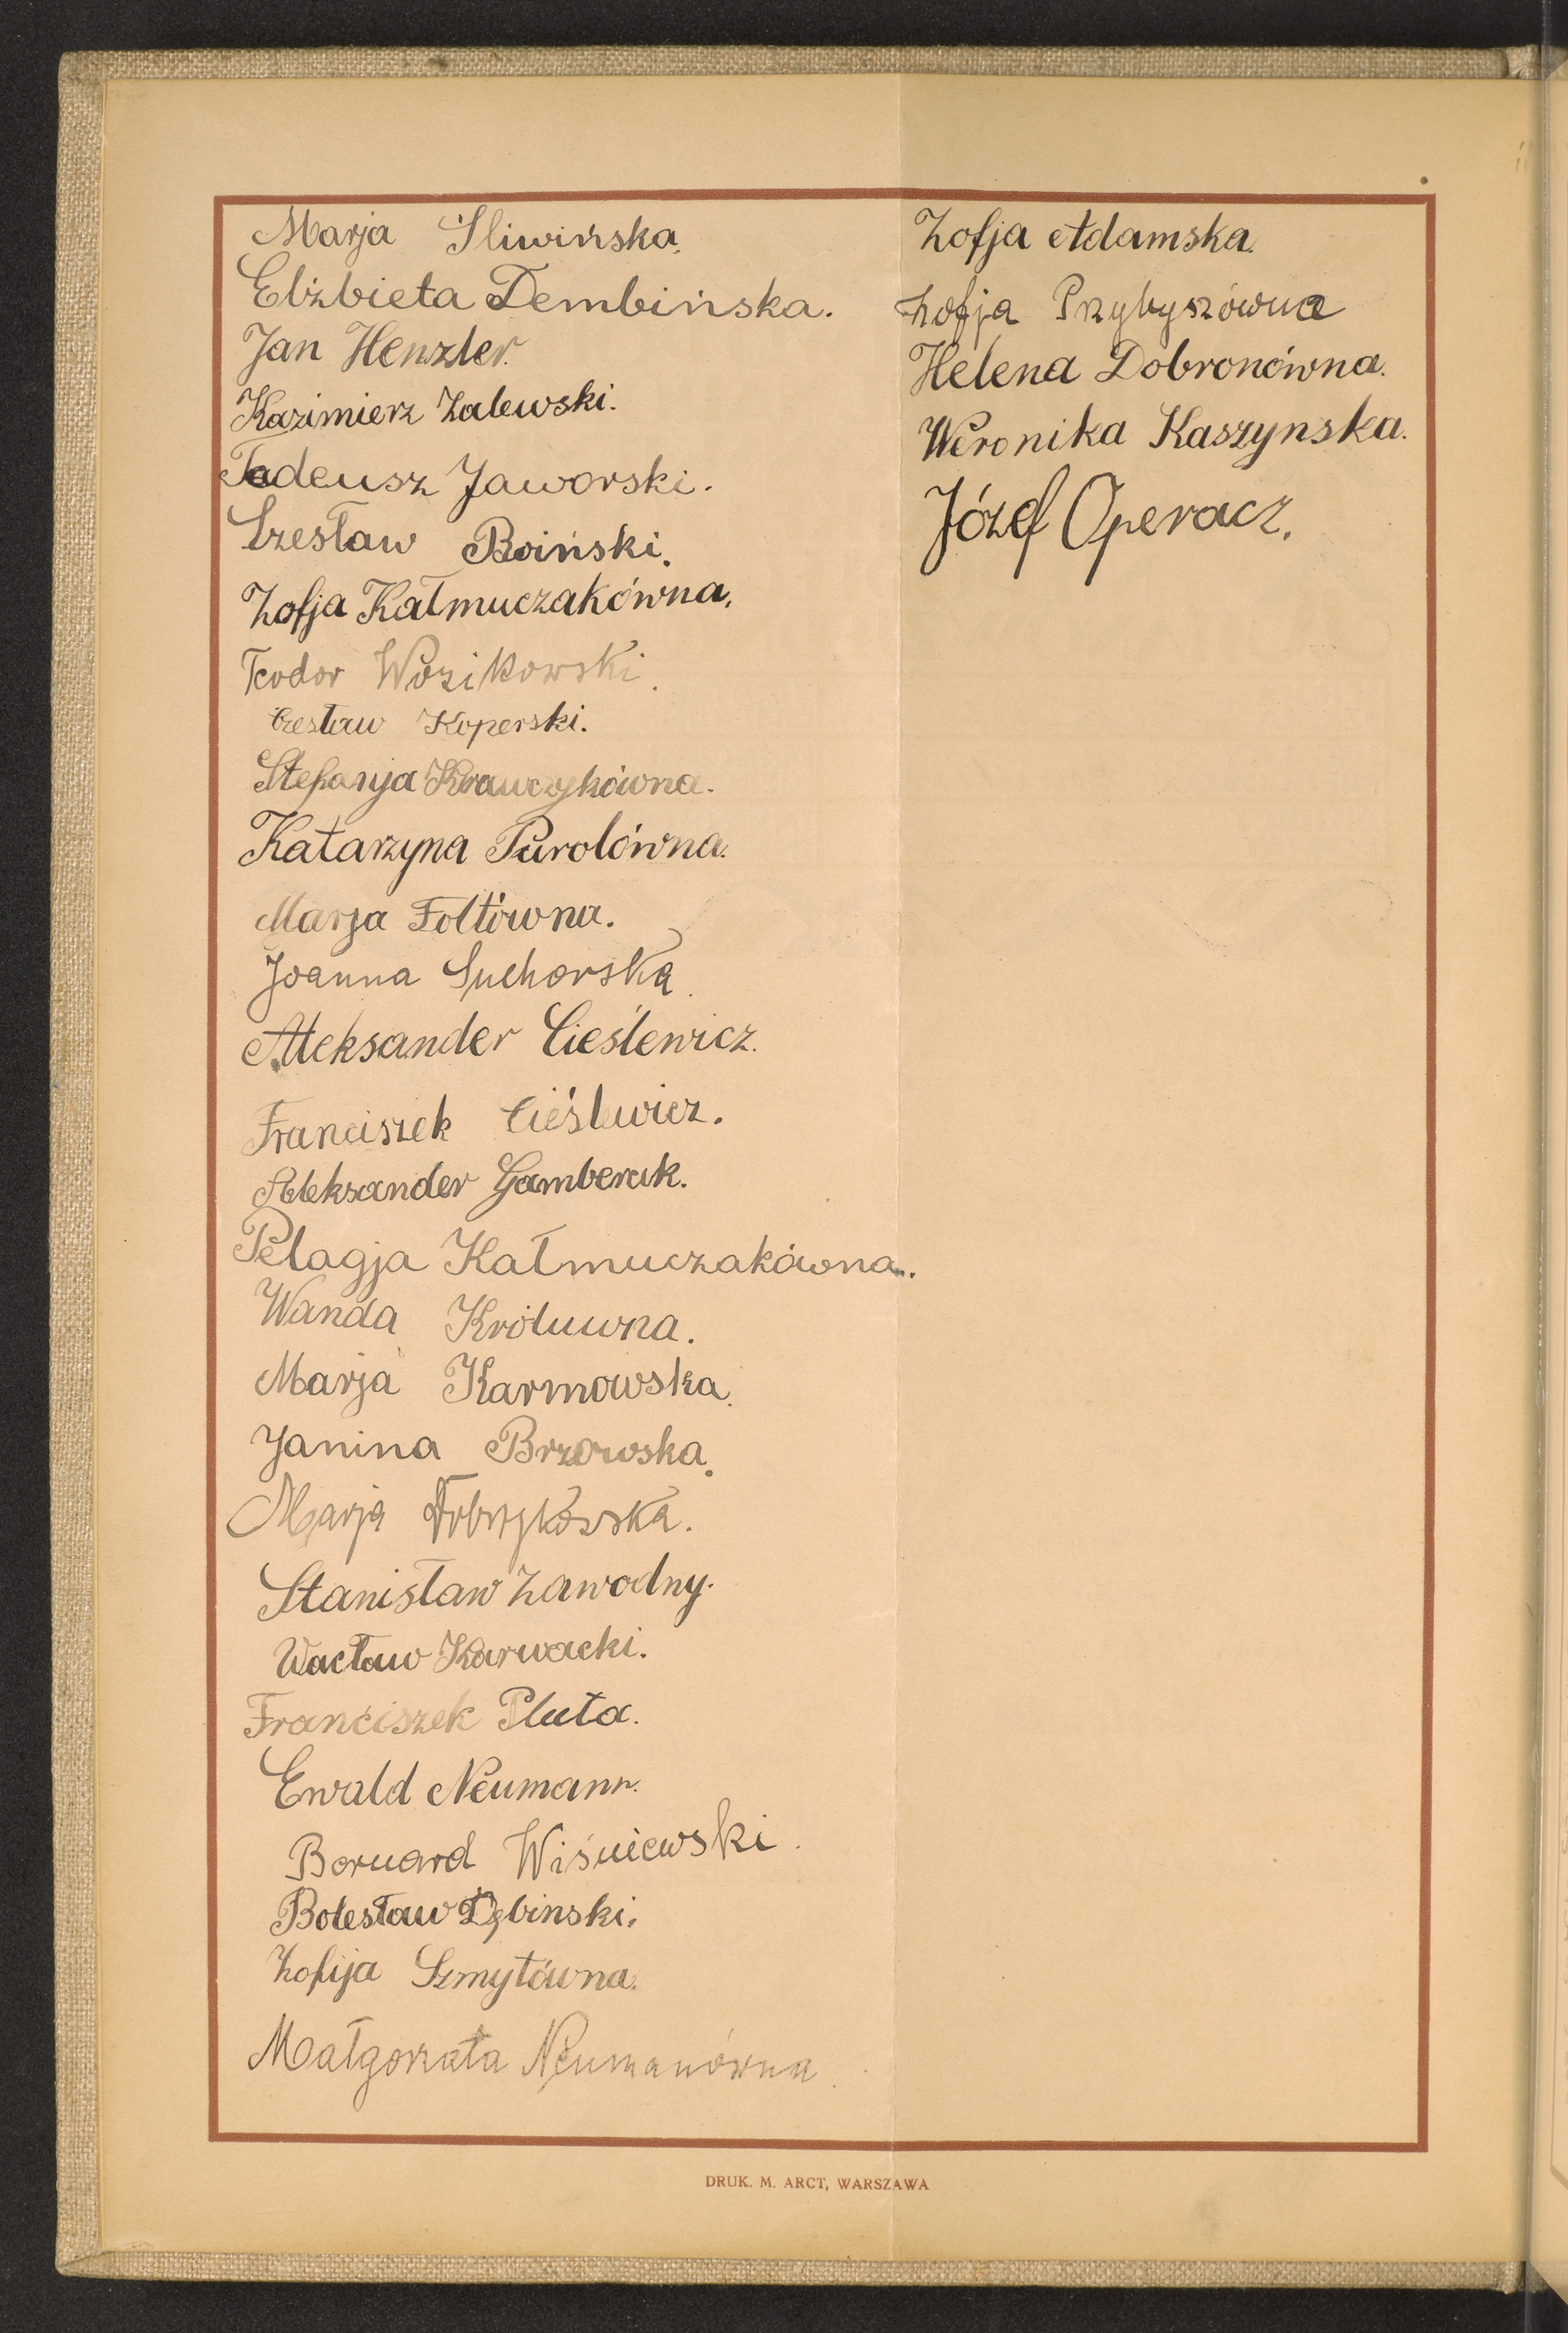 Marja Śliwińska.
Elżbieta Dembińska.
Jan Henzler.
Kazimierz Zalewski.
Tadeusz Jaworski.
Czesław Boiński.
Zofja Kałmuczakówna.
Teodor Wozikowski.
Czesław Koperski.
Stefanja Krawczykówna.
Katarzyna Purolówna.
Marja Foltówna.
Joanna Suchorska.
Aleksander Cieślewicz.
Franciszek Cieślewicz.
Aleksander Gamberak.
Pelagja Kałmuczakówna.
Wanda Króluwna.
Marja Karmowska.
Janina Brzowska.
Marja
Stanisław Zawodny.
Wacław Karwacki.
Franciszek Pluta.
Ewald Neumann.
Bernard Wiśniewski.
Bolesław Dębinski.
Zofija Szmytówna.
Małgorzata Neumanówna.
Zofja Adamska.
Zofja Przybyszówna
Helena Dobronówna.
Weronika Kaszynska.
Józef Operacz.
DRUK. M. ARCT, WARSZAWA